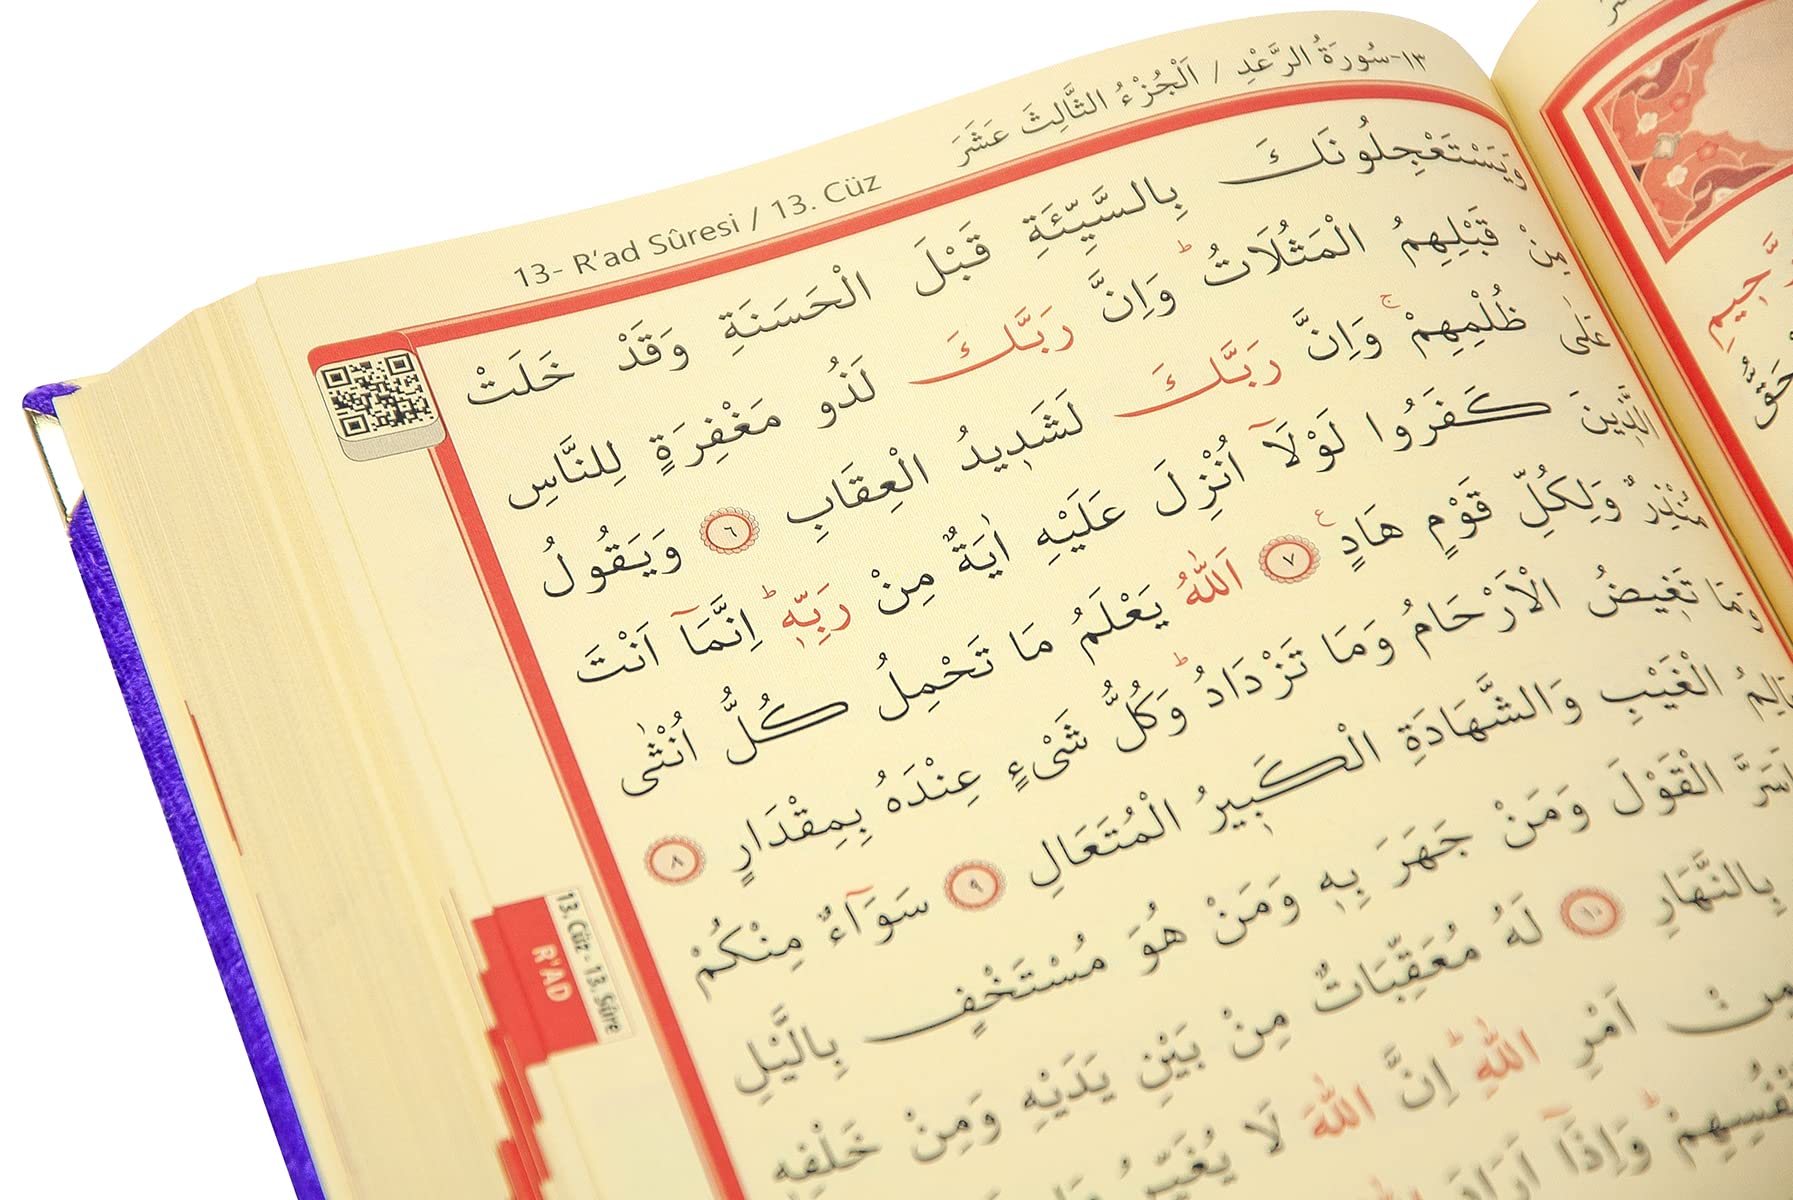 ١٣-سُورَةُ الرَّعْدِ / اَلْجُزْءُ الثَّالِثَ عَشَرَ
13- R'ad Sûresi / 13. Cüz
وَيَسْتَعْجِلُونَكَ بِالسَّيِّئَةِ قَبْلَ الْحَسَنَةِ وَقَدْ خَلَتْ
مِنْ قَبْلِهِمُ الْمَثُلَاتُۜ وَاِنَّ رَبَّكَ لَذُو مَغْفِرَةٍ لِلنَّاسِ
عَلٰى ظُلْمِهِمْۚ وَاِنَّ رَبَّكَ لَشَدٖيدُ الْعِقَابِ ٦ وَيَقُولُ
الَّذٖينَ كَفَرُوا لَوْلَٓا اُنْزِلَ عَلَيْهِ اٰيَةٌ مِنْ رَبِّهٖۜ اِنَّمَٓا اَنْتَ
مُنْذِرٌ وَلِكُلِّ قَوْمٍ هَادٍ ٧ اَللّٰهُ يَعْلَمُ مَا تَحْمِلُ كُلُّ اُنْثٰى
وَمَا تَغٖيضُ الْاَرْحَامُ وَمَا تَزْدَادُۜ وَكُلُّ شَیْءٍ عِنْدَهُ بِمِقْدَارٍ ٨
الْغَيْبِ وَالشَّهَادَةِ الْكَبٖيرُ الْمُتَعَالِ ٩ سَوَٓاءٌ مِنْكُمْ
الْقَوْلَ وَمَنْ جَهَرَ بِهٖ وَمَنْ هُوَ مُسْتَخْفٍ بِالَّيْلِ
بِالنَّهَارِ ١٠ لَهُ مُعَقِّبَاتٌ مِنْ بَيْنِ يَدَيْهِ وَمِنْ خَلْفِهٖ
مِنْ اَمْرِ اللّٰهِۜ اِنَّ اللّٰهَ لَا يُغَيِّرُ
وَاِذَٓا اَرَادَ
13. Cüz - 13. Sûre
R'AD